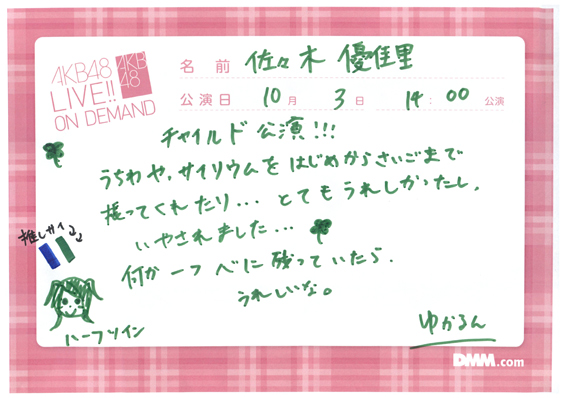 AKB48
LIVE!!
ON DEMAND
AKB
48
名前 佐々木 優佳里
公演日 10月 3日 14:00 公演
チャイルド公演!!!
うちわや、サイリウムをはじめからさいごまで
振ってくれたり... とてもうれしかったし、
いやされました...
推しサイ
何か一つべに残っていたら、
うれしいな。
ハーフツイン
ゆかるん
DMM.com